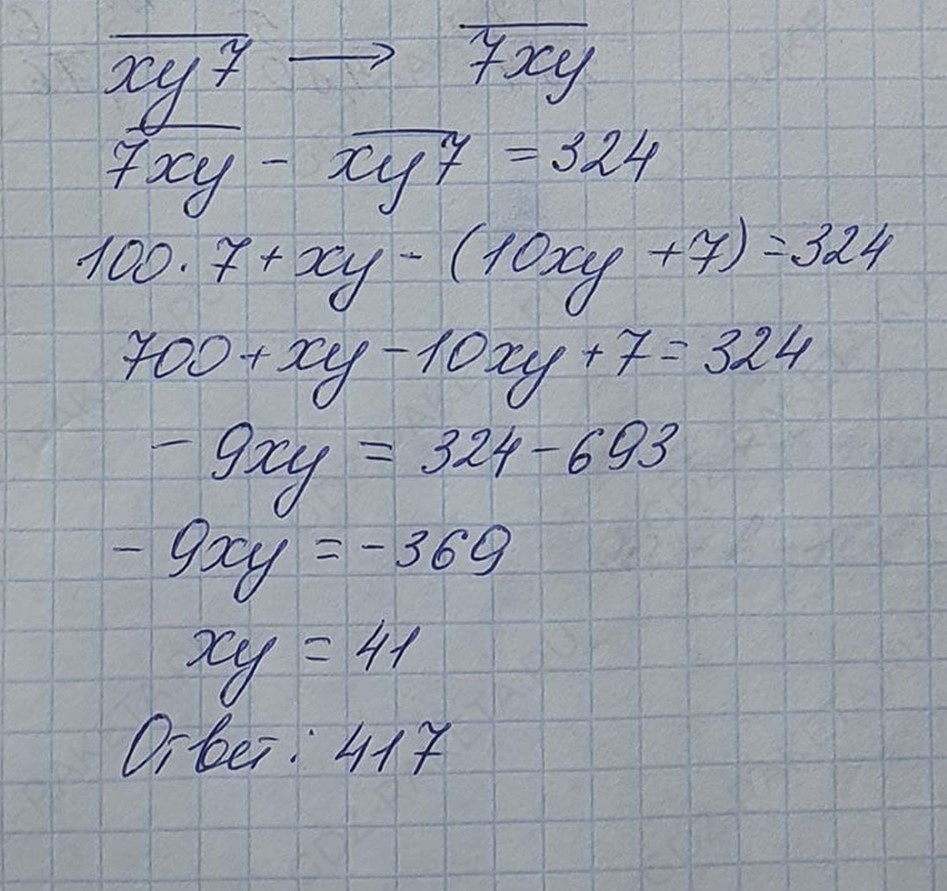 xy7 → 7xy
7xy - xy7 = 324
100·7+xy-(10xy+7)=324
700+xy-10xy+7=324
-9xy = 324-693
-9xy = -369
xy = 41
Ответ: 417